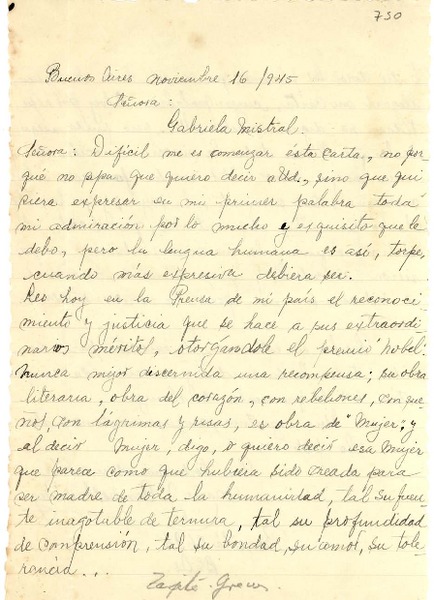 750
Buenos Aires noviembre 16/945
Señora:
Gabriela Mistral.
Señora: Dificil me es comenzar esta carta, no por
qué no sepa que quiero decir a Ud, sino que qui
siera expresar en mi primer palabra toda
mi admiración por lo mucho y esquisito que le
debo, pero la lengua humana es asó, torpe,
cuando más expresiva debiera ser.
Leo hoy en la Prensa de mi país el reconoci
miento y justicia que se hace a sus extraordi
narios méritos, otorgandole el premio Nobel:
nunca mejor discernida una recompensa; su obra
literaria, obra del corazón, con rebeliones, con que
ños, con lágrimas y risas, es obra de "Mujer"; y
al decir Mujer, digo, o quiero decir esa Mujer
que parea como que hubiera sido creada para
ser madre de toda la humanidad, tal su fuen
te inagotable de ternura, tal su profundidad
de comprensión, tal su bondad, su amor, su tole
rancia...